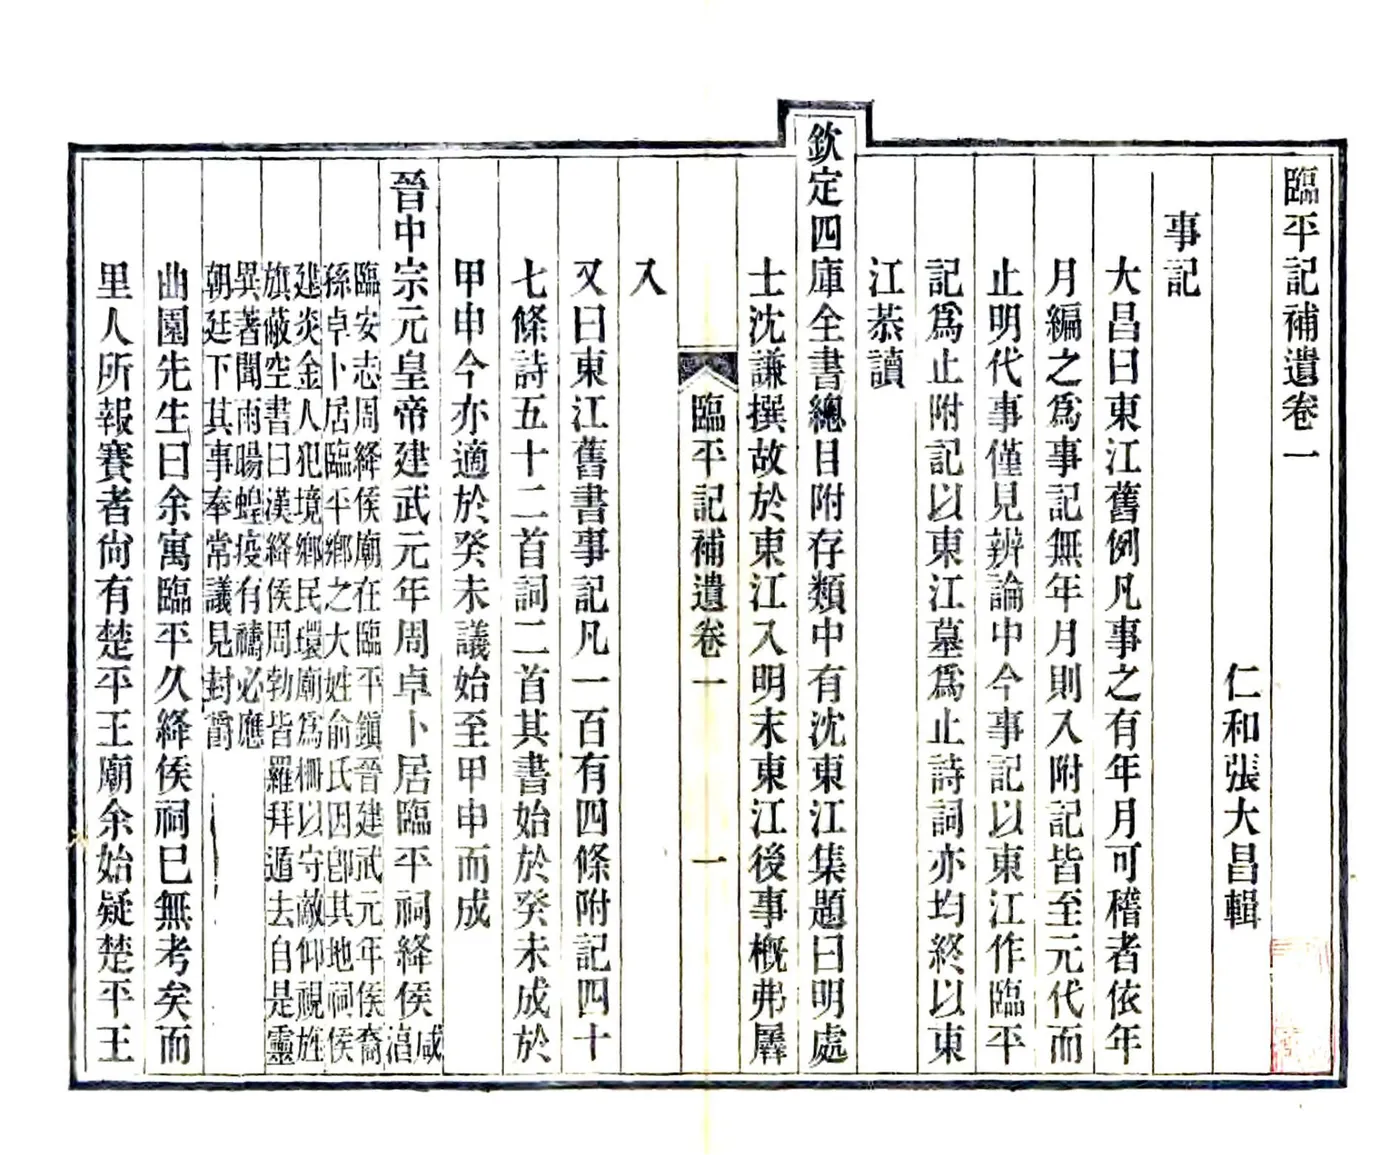 臨平記補遺卷一
仁和張大昌輯
事記
大昌曰東江舊例凡事之有年月可稽者依年
月編之爲事記無年月則入附記皆至元代而
止明代事僅見辨論中今事記以東江作臨平
記爲止附記以東江墓爲止詩詞亦均終以東
江恭讀
欽定四庫全書總目附存類中有沈東江集題曰明處
士沈謙撰故於東江入明末東江後事槪弗羼
臨平記補遺卷一 一
入
又曰東江舊書事記凡一百有四條附記四十
七條詩五十二首詞二首其書始於癸未成於
甲申今亦適於癸未議始至甲申而成
晉中宗元皇帝建武元年周卓卜居臨平祠絳侯咸
淳
臨安志周絳侯廟在臨平鎭晉建武元年侯裔
孫卓卜居臨平鄉之大姓俞氏因卽其地祠侯
建炎金人犯境鄉民環廟爲柵以守敵仰視旌
旗蔽空書曰漢絳侯周勃皆羅拜遁去自是靈
異著聞雨暘蝗疫有禱必應
朝廷下其事奉常議見封爵
曲園先生曰余寓臨平久絳侯祠已無考矣而
里人所報賽者尙有楚平王廟余始疑楚平王